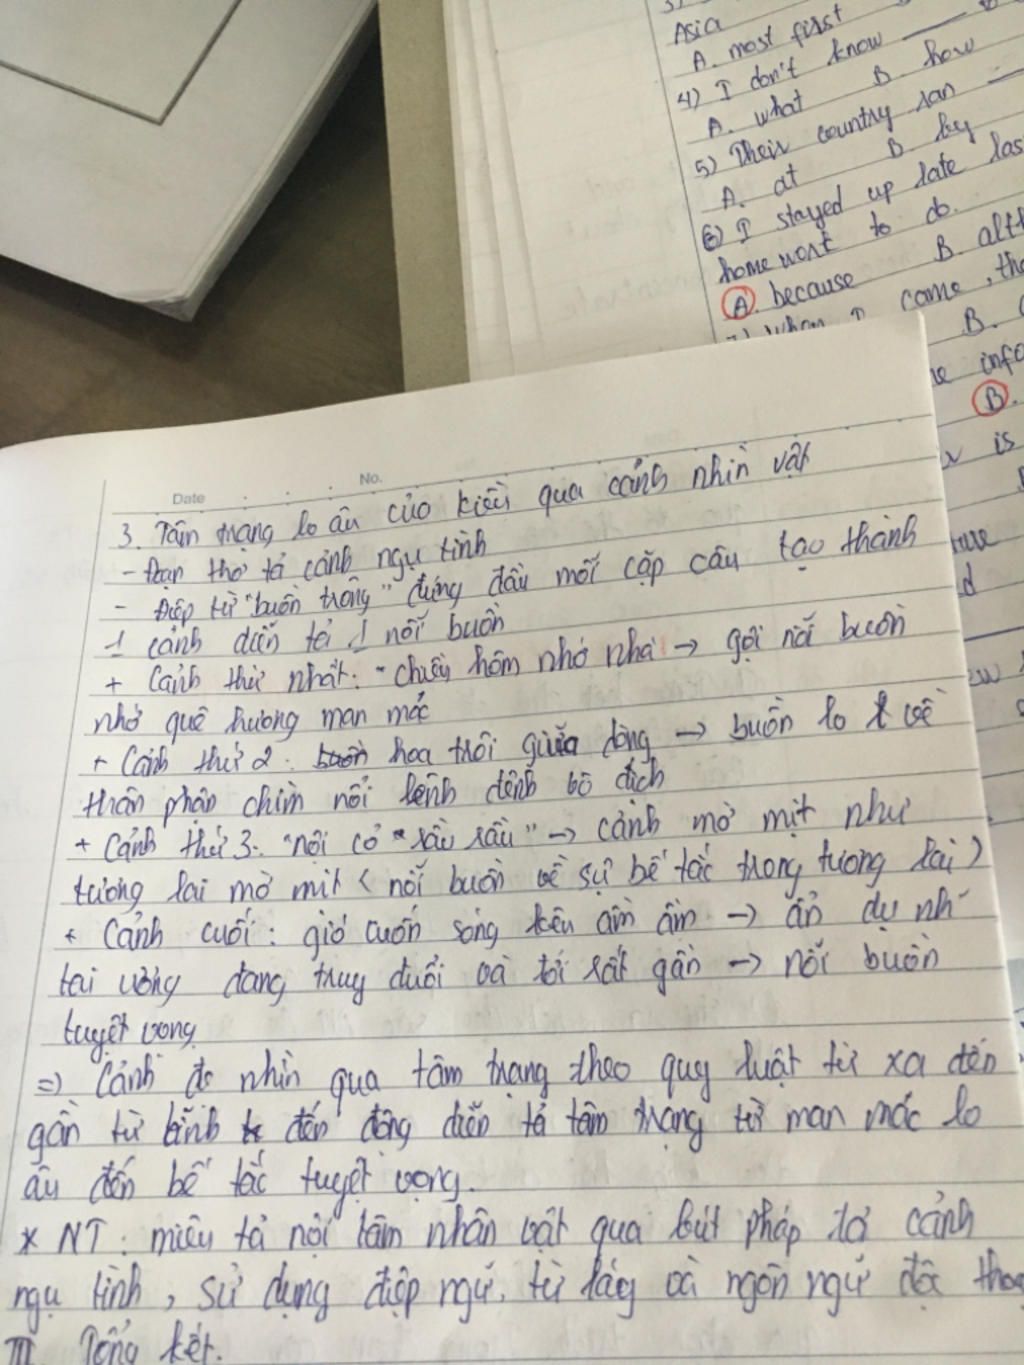 Asia
A. most first
4) I don't know
A. what B. how
5) Their country ran
A. at B by
6) I stayed up late las
home wort to do.
A. because B. alth
7) When I came, the
B.
ne info
B.
is
ture
d
Date No.
3. Tâm trạng lo âu của kiều qua cảnh nhìn vật
- Đoạn thơ tả cảnh ngụ tình
- Điệp từ "buồn trông" đứng đầu mối cặp câu tạo thành
1 cảnh diễn tả 1 nỗi buồn
+ Cảnh thứ nhất: "chiều hôm nhớ nhà → gợi nỗi buồn
nhớ quê hương man mác
+ Cảnh thứ 2: buồn hoa trôi giữa dòng → buồn lo về
thân phận chìm nổi lênh đênh bô đich
+ Cảnh thứ 3: "nội cỏ "rầu rầu" → cảnh mờ mịt như
tương lai mờ mịt (nỗi buồn về sự bế tắc trong tương lai)
+ Cảnh cuối: gió cuốn sóng kêu ầm ầm → ẩn dụ nh
tai ương đang truy đuổi và tới rất gần → nỗi buồn
tuyệt vọng
=> Cảnh đc nhìn qua tâm trạng theo quy luật từ xa đến
gần từ tĩnh đến động diễn tả tâm trạng từ man mác lo
âu đến bế tắc tuyệt vọng.
* NT: miêu tả nội tâm nhân vật qua bút pháp tả cảnh
ngụ tình, sử dụng điệp ngữ, từ láy và ngôn ngữ độc thoạ
III Tổng kết.